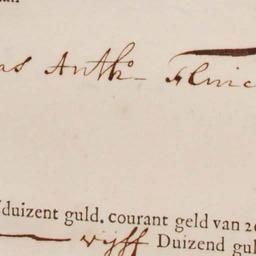 as Anth°
duizent guld. courant geld van 20
vijff Duizend gul